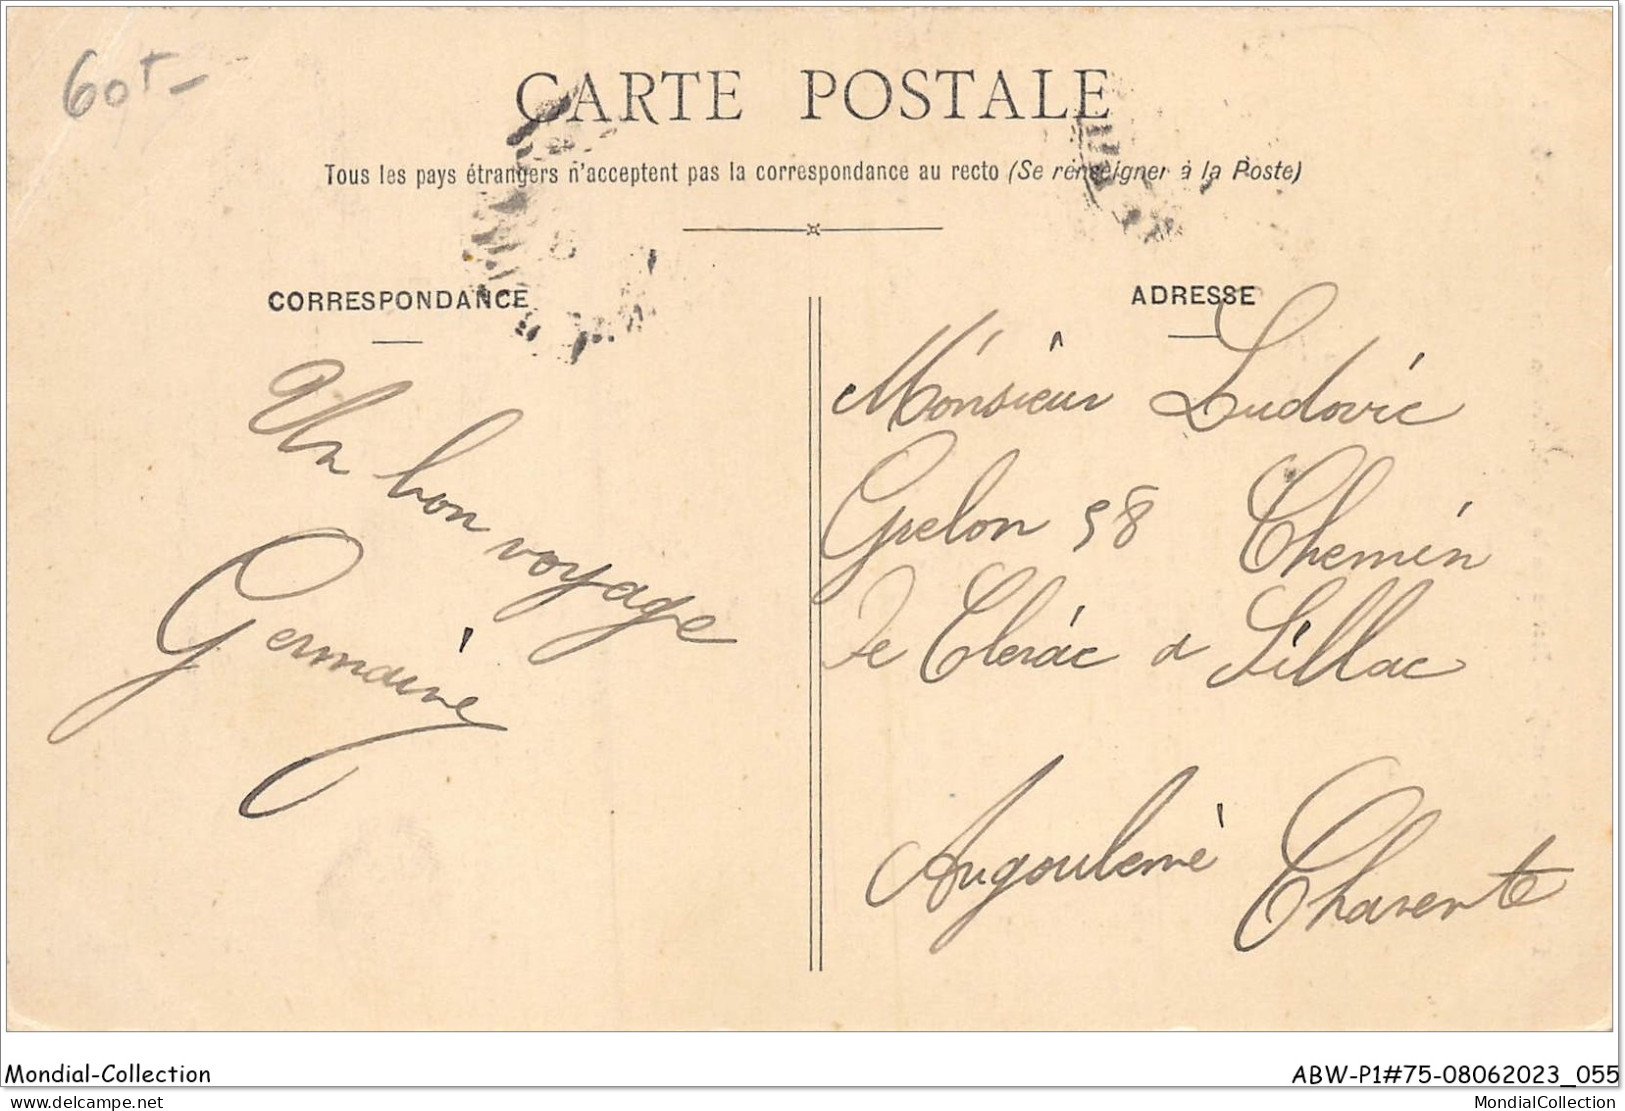 60f-
CARTE POSTALE
Tous les pays étrangers n'acceptent pas la correspondance au recto (Se renseigner à la Poste)
CORRESPONDANCE
Un bon voyage
Germaine
ADRESSE
Monsieur Ludovic
Grelon 58 Chemin
de Clerac a Sillac
Angoulême Charente
Mondial-Collection
ABW-P1#75-08062023_055
www.delcampe.net
MondialCollection